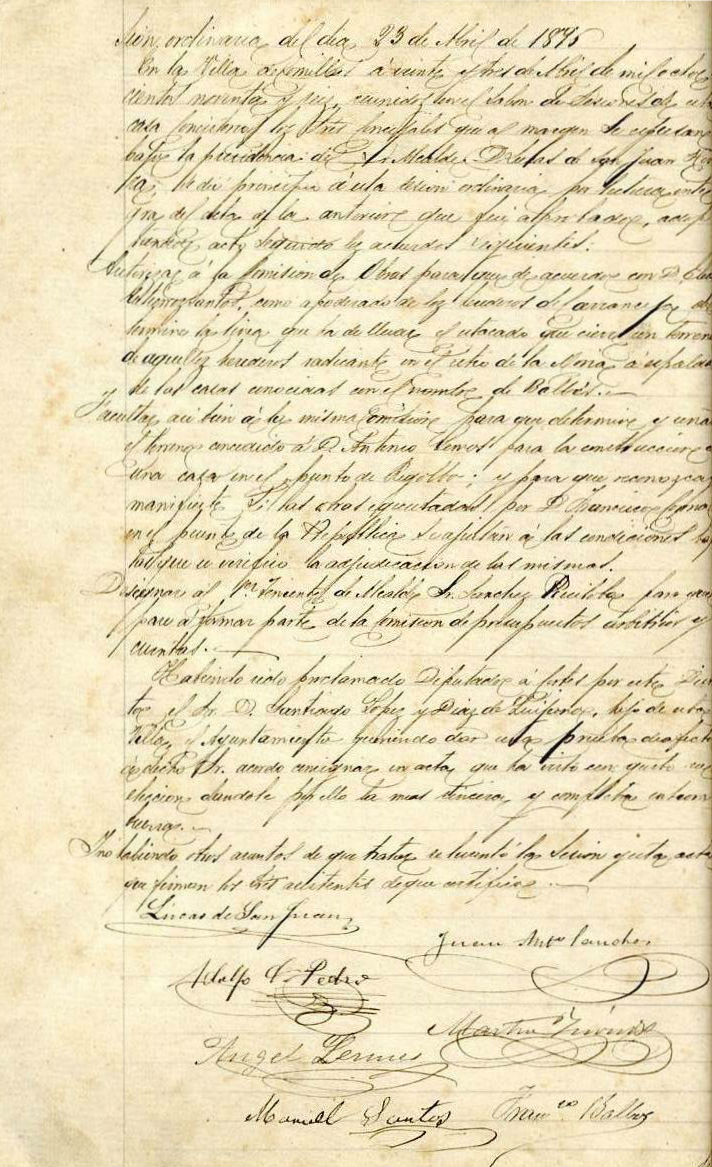 Sion ordinaria del dia 23 de Abril de 1896
En la Villa de Comillas á veinte y tres de Abril de mil ocho
cientos noventa y seis, reunidos en el Salon de Sesiones de esta
casa Consistorial los Sres Concejales que al margen se espresan
bajo la presidencia del Sr Alcalde D. Lucas de San Juan
se dió principio á esta sesion ordinaria por lectura inte
gra del acta de la anterior que fué aprobada, adop
tandose acto seguido los acuerdos siguientes:
Autorizar á la Comision de Obras para que de acuerdo con D.
como apoderado de los herederos de
termine la linea que há de llevar el estacado que cierre un terreno
de aquellos herederos radicante en el sitio de la á espalda
de las casas conocidas con el nombre de Balbás.
Facultar asi bien á la misma Comision para que determine y señale
el terreno concedido á D. Antonio para la construccion de
una casa en el punto de; y para que reconozca y
manifieste si las obras ejecutadas por D. Francisco
en el puente de la Republica se ajustan á las condiciones
que se verificó la adjudicacion de las mismas.
Designar al 1er Teniente de Alcalde Sr. Sanchez para que
pase á formar parte de la Comision de presupuestos arbitrios y
cuentas.
Habiendo sido proclamado Diputado á Cortes por este Distri
to el Sr. D. Santiago Lopez y Diaz de Quijano, hijo de esta
Villa, el Ayuntamiento queriendo dar una prueba de afecto
á dicho Sr. acordo consignar en acta que ha visto con gusto su
eleccion dandole por ello la mas sincera y completa enhora
buena.
Y no habiendo otros asuntos de que tratar se levantó la sesion y esta acta
que firman los Sres asistentes de que certifico.
Lucas de San Juan
Juan Anto Sanchez
Adolfo C. Pedro
Martin
Angel Lemus
Manuel Santos
Franco Balbas